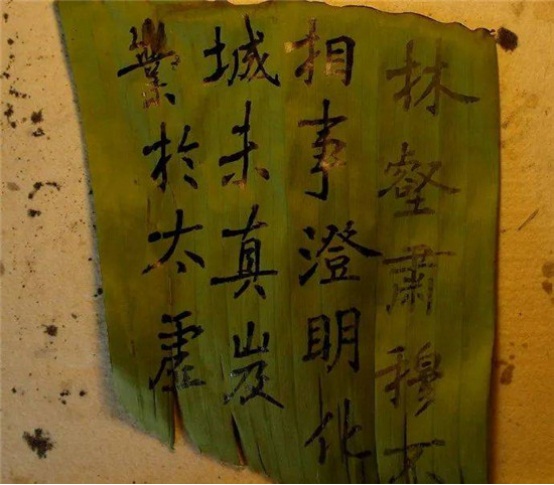 林壑肅穆不
相事澄明化
城未真岌
業於太虛